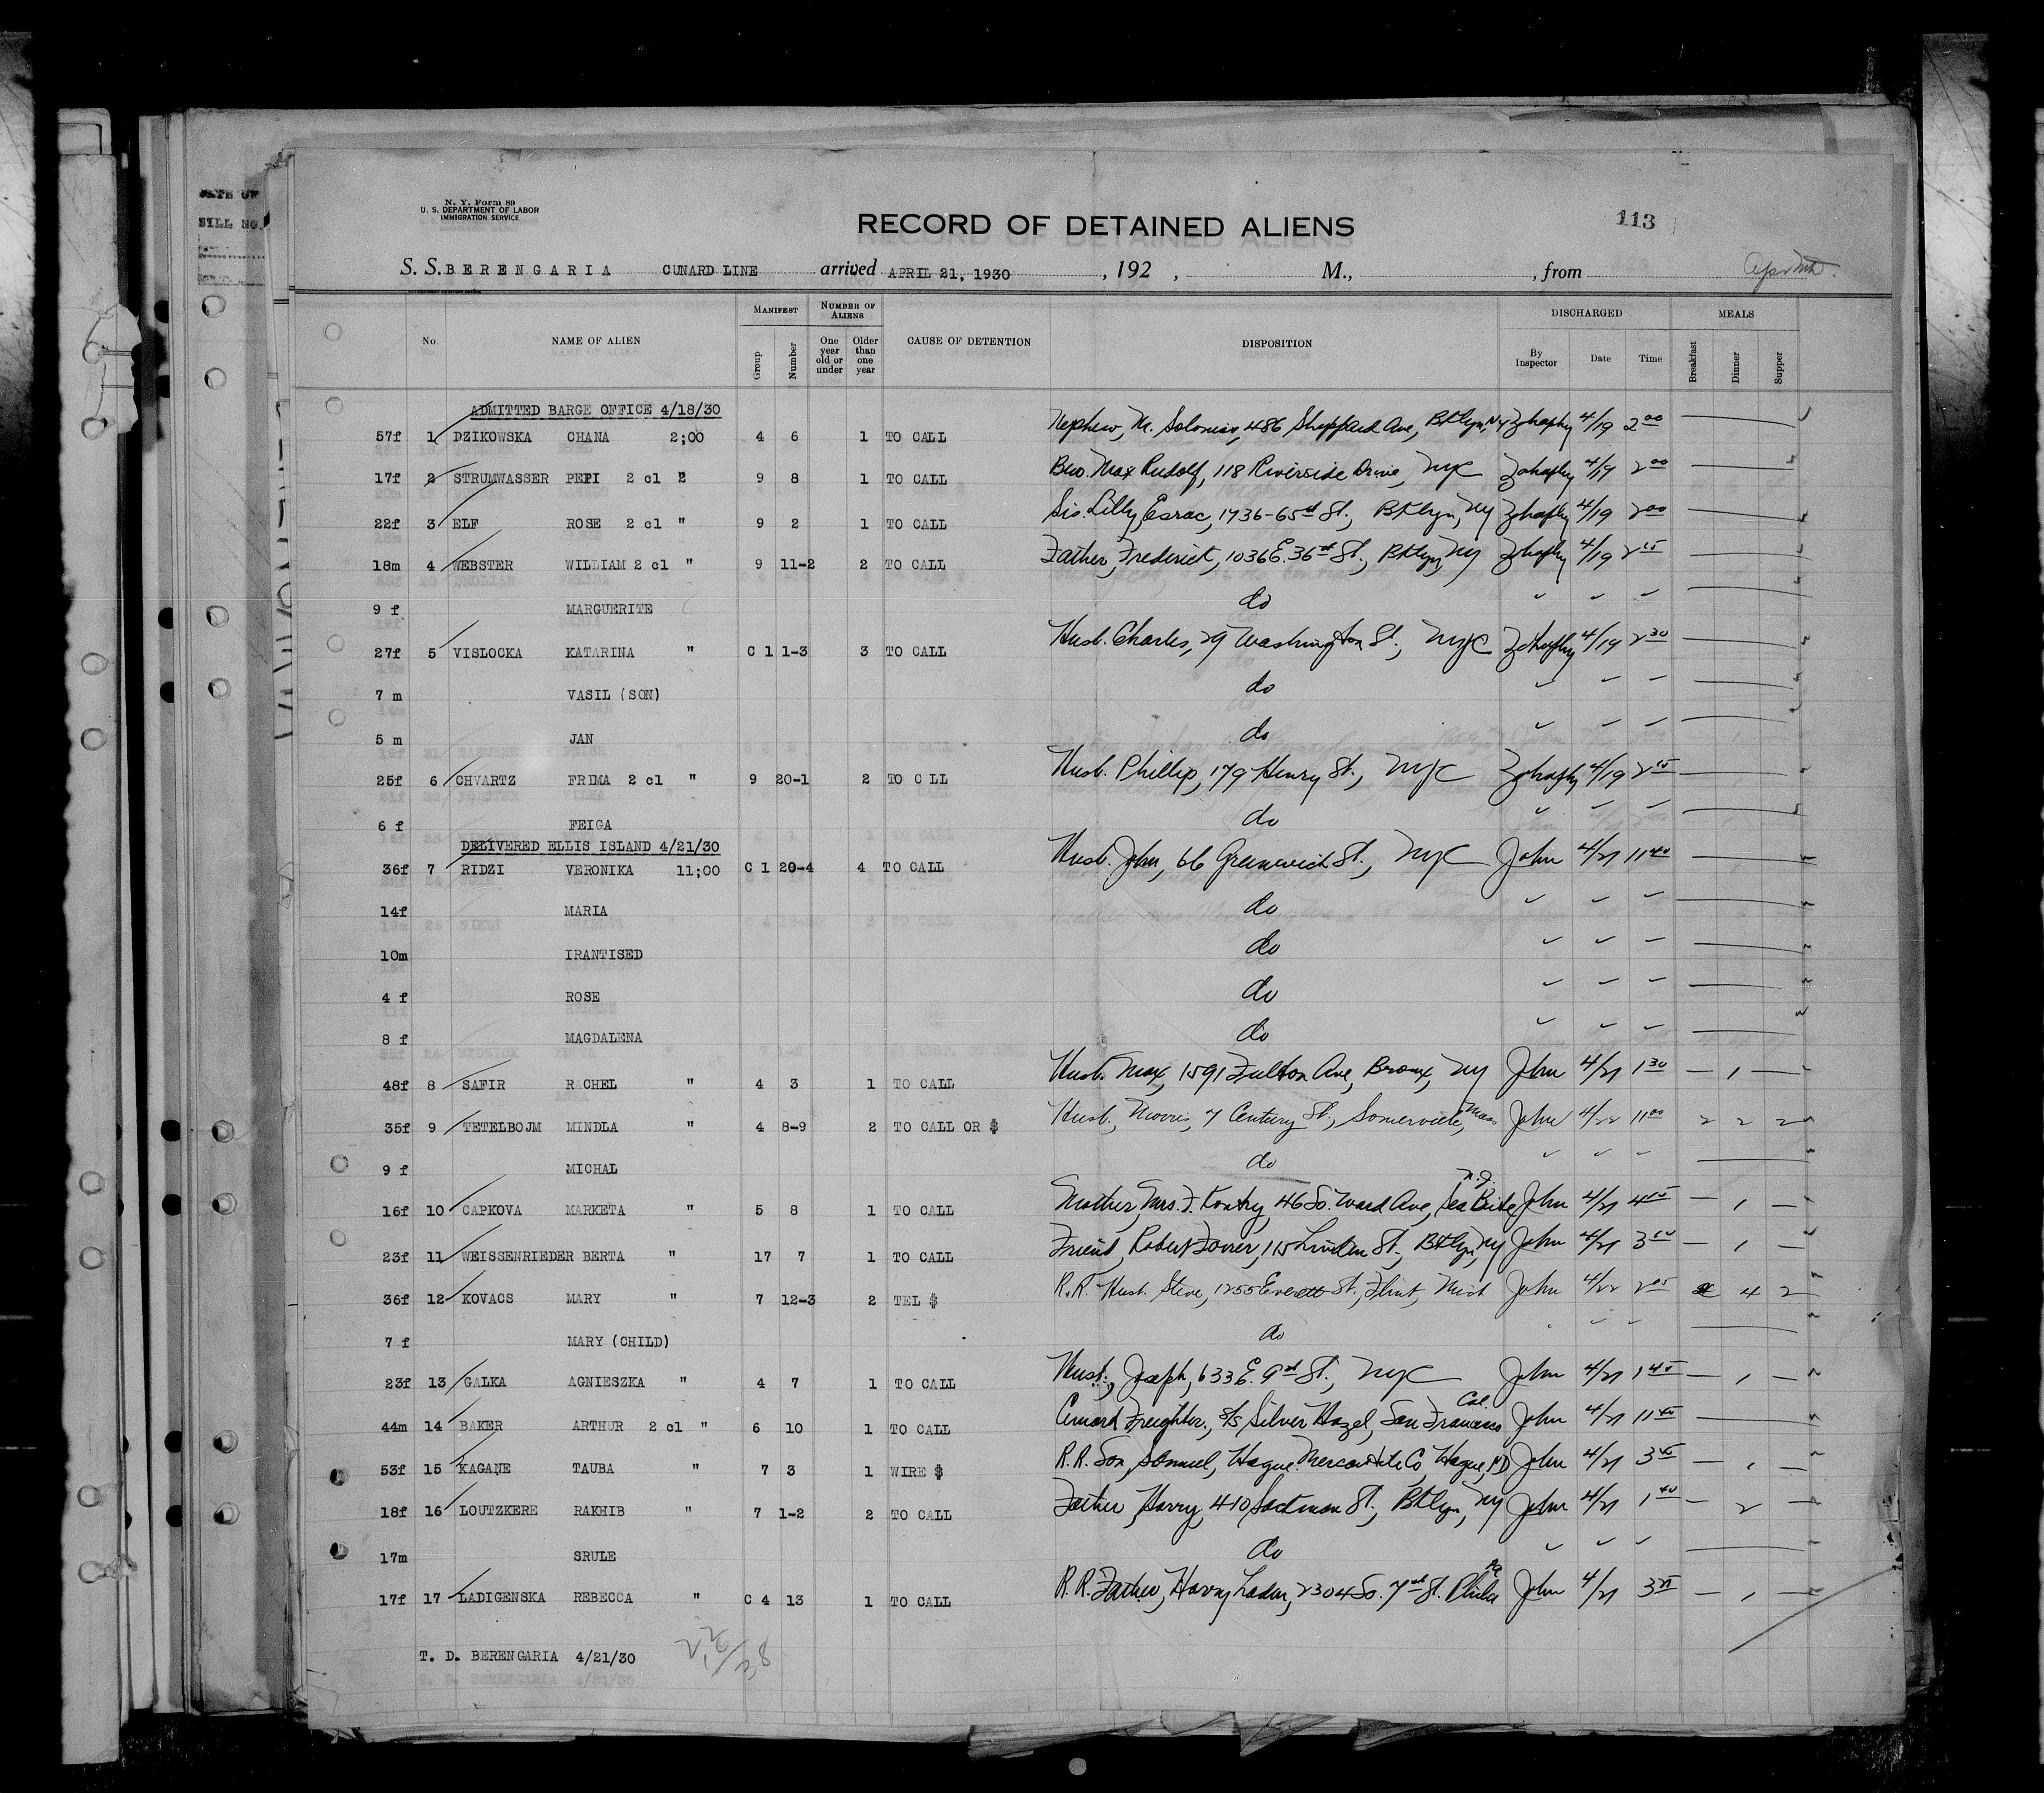 N. Y. Form 89
U. S. DEPARTMENT OF LABOR
IMMIGRATION SERVICE
RECORD OF DETAINED ALIENS
113
S. S. BERENGARIA CUNARD LINE arrived APRIL 21, 1930 , 192 , M., , from
No. NAME OF ALIEN MANIFEST Group Number NUMBER OF ALIENS One year old or under Older than one year CAUSE OF DETENTION DISPOSITION DISCHARGED By Inspector Date Time MEALS Breakfast Dinner Supper
ADMITTED BARGE OFFICE 4/18/30
57f 1 DZIKOWSKA CHANA 2;00 4 6 1 TO CALL Nephew, M. 486 Sheppard Ave, Bklyn, NY 4/19 2 00
17f 2 STRUMWASSER PEPI 2 cl " 9 8 1 TO CALL Max Rudolf, 118 Riverside Drive, NYC 4/19 2 00
22f 3 ELF ROSE 2 cl " 9 2 1 TO CALL Sis. Lilly 1736-65th St., Bklyn, NY 4/19 2 00
18m 4 WEBSTER WILLIAM 2 cl " 9 11-2 2 TO CALL Father, Frederick, 1036 E. 36th St., Bklyn, NY 4/19 2 15
9 f MARGUERITE do
27f 5 VISLOCKA KATARINA " C 1 1-3 3 TO CALL Husb. Charles, 29 Washington St., NYC 4/19 2 30
7 m VASIL (SON) do
5 m JAN do
25f 6 CHVARTZ FRIMA 2 cl " 9 20-1 2 TO C LL Husb. Phillip, 179 Henry St., NYC 4/19 2 15
6 f FEIGA do
DELIVERED ELLIS ISLAND 4/21/30
36f 7 RIDZI VERONIKA 11;00 C 1 20-4 4 TO CALL Husb. John, 66 Greenwich St., NYC John 4/21 11 40
14f MARIA do
10m IRANTISED do
4 f ROSE do
8 f MAGDALENA do
48f 8 SAFIR RACHEL " 4 3 1 TO CALL Husb. Max, 1591 Fulton Ave, Bronx, NY John 4/21 1 30 — 1 —
35f 9 TETELBOJM MINDLA " 4 8-9 2 TO CALL OR $ Husb., Morris, 7 Century St., Somerville, Mass John 4/22 11 00 2 2 2
9 f MICHAL do
16f 10 CAPKOVA MARKETA " 5 8 1 TO CALL Mother, Mrs. F. 46 So. Ward Ave, Sea Brite N.J. John 4/21 — 1 —
23f 11 WEISSENRIEDER BERTA " 17 7 1 TO CALL Friend, Robert 115 Linden St., Bklyn, NY John 4/21 3 — 1 —
36f 12 KOVACS MARY " 7 12-3 2 TEL $ R.R. Husb. Steve, 1255 Everett St., Flint, Mich John 4/22 2 05 4 2
7 f MARY (CHILD) do
23f 13 GALKA AGNIESZKA " 4 7 1 TO CALL Husb., Joseph, 633 E. 9th St., NYC John 4/21 1 45 — 1 —
44m 14 BAKER ARTHUR 2 cl " 6 10 1 TO CALL Cunard Freighter, S/S Silver Hazel, San Francisco Cal. John 4/21 11 40
53f 15 KAGANE TAUBA " 7 3 1 WIRE $ R.R. Son, Samuel, Hague Mercantile Co, Hague, ND John 4/21 3 — 1 —
18f 16 LOUTZKERE RAKHIB " 7 1-2 2 TO CALL Father, Harry, 410 St., Bklyn, NY John 4/21 1 40 — 2 —
17m SRULE do
17f 17 LADIGENSKA REBECCA " C 4 13 1 TO CALL R.R. Father, Harry 2304 So. 7th St. Phila Pa John 4/21 3 — 1 —
T. D. BERENGARIA 4/21/30